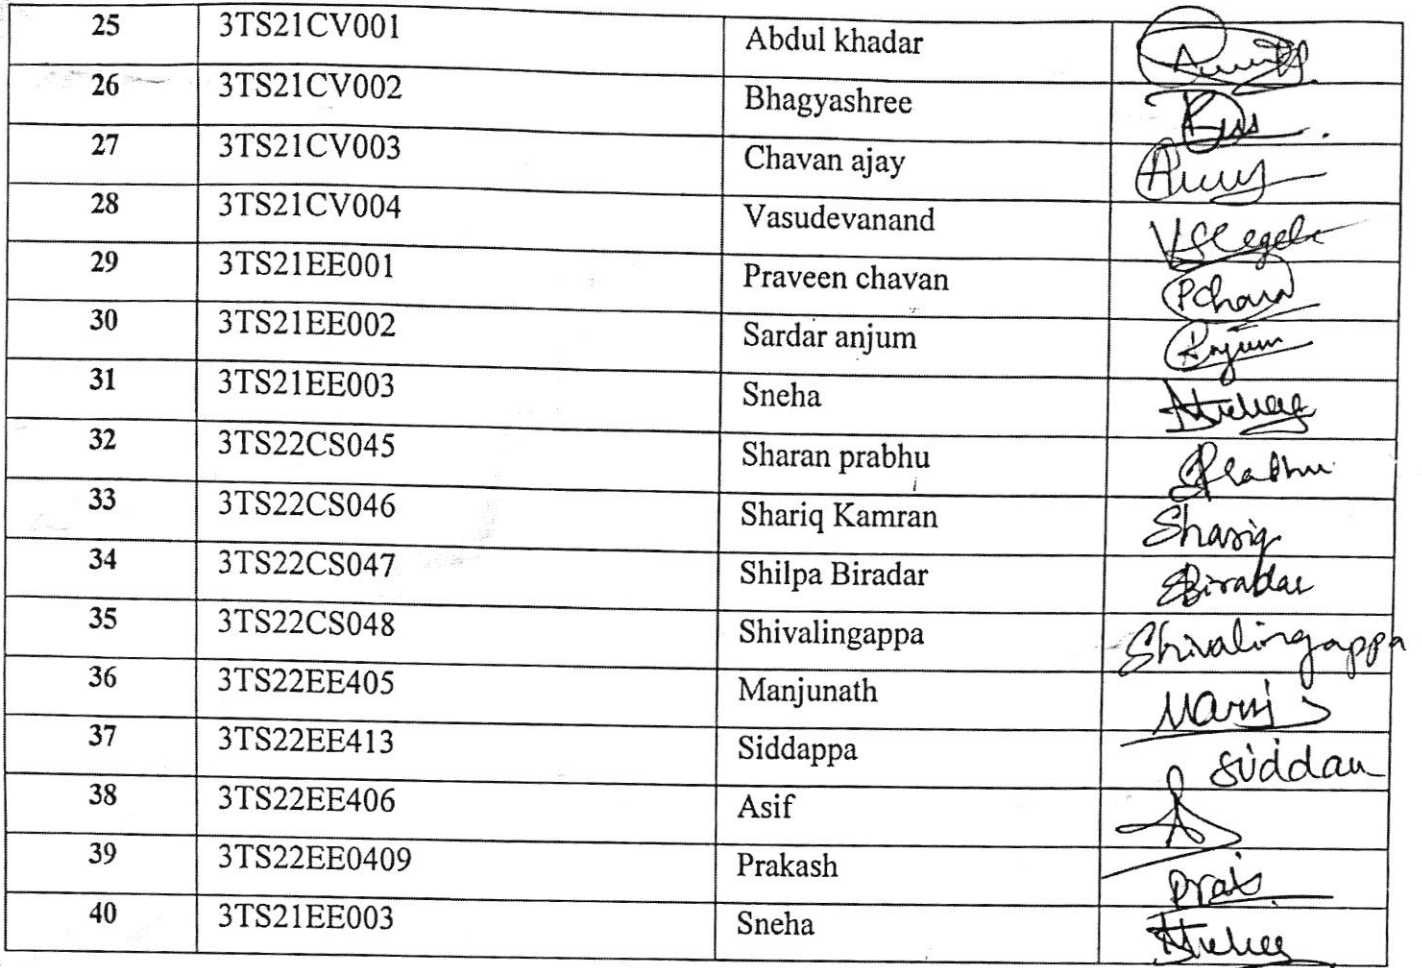 25 3TS21CV001 Abdul khadar
26 3TS21CV002 Bhagyashree
27 3TS21CV003 Chavan ajay
28 3TS21CV004 Vasudevanand
29 3TS21EE001 Praveen chavan
30 3TS21EE002 Sardar anjum
31 3TS21EE003 Sneha
32 3TS22CS045 Sharan prabhu
33 3TS22CS046 Shariq Kamran Shariq
34 3TS22CS047 Shilpa Biradar SBiradar
35 3TS22CS048 Shivalingappa Shivalingappa
36 3TS22EE405 Manjunath
37 3TS22EE413 Siddappa
38 3TS22EE406 Asif
39 3TS22EE0409 Prakash
40 3TS21EE003 Sneha